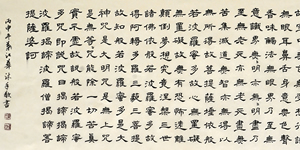 香味觸法無眼界乃至無
意識界無無明亦無無明
盡乃至無老死亦無老死盡無
苦集滅道無智亦無得
以無所得故菩提薩埵依般
若波羅蜜多故心無罣礙
無罣礙故無有恐怖遠離
顛倒夢想究竟涅槃三世
諸佛依般若波羅蜜多故
得阿耨多羅三藐三菩提
故知般若波羅蜜多是大
神咒是大明咒是無上咒
是無等等咒能除一切苦真
實不虛故說般若波羅蜜
多咒即說咒曰揭諦揭諦
波羅揭諦波羅僧揭諦菩
提薩婆訶